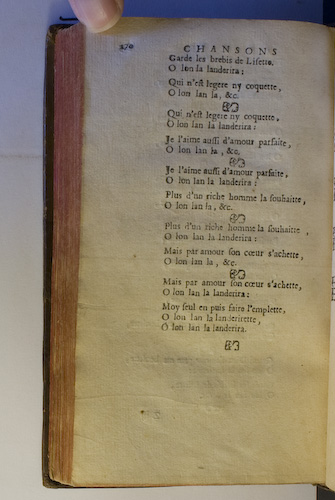 270
CHANSONS
Garde les brebis de Lisette.
O lon la landerira :
Qui n'est legere ny coquette,
O lon lan la, &c.
Qui n'est legere ny coquette,
O lon lan la landerira :
Je l'aime aussi d'amour parfaite,
O lon lan la, &c.
Je l'aime aussi d'amour parfaite,
O lon lan la landerira :
Plus d'un riche homme la souhaitte,
O lon lan la, &c.
Plus d'un riche homme la souhaitte,
O lon lan la landerira :
Mais par amour son cœur s'achette,
O lon lan la, &c.
Mais par amour son cœur s'achette,
O lon lan la landerira :
Moy seul en puis faire l'emplette,
O lon lan la landerirette,
O lon lan la landerira.